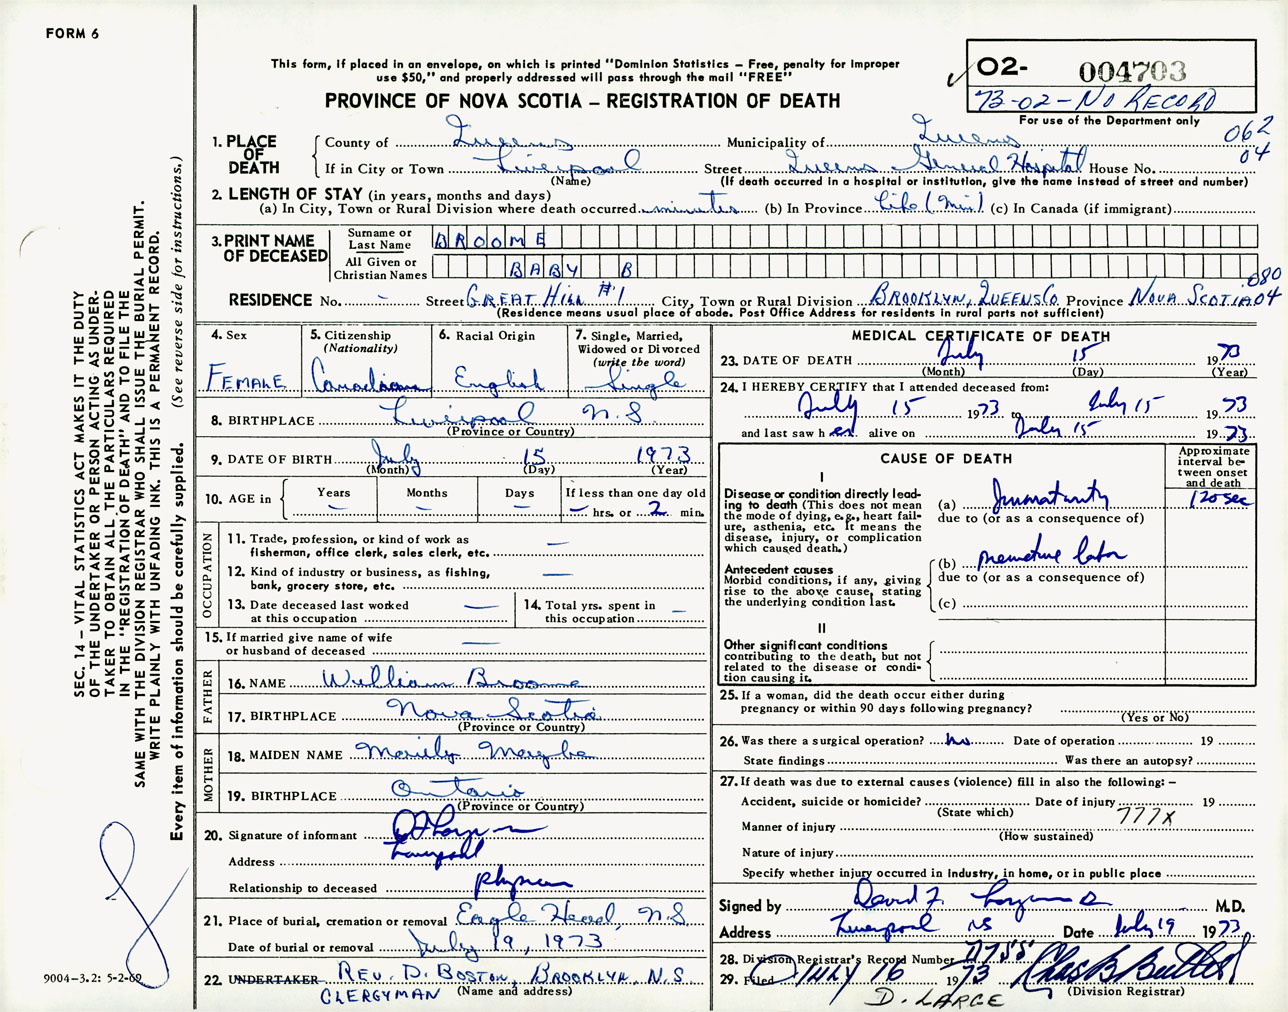 FORM 6
This form, if placed in an envelope, on which is printed "Dominion Statistics – Free, penalty for improper
use $50," and properly addressed will pass through the mail "FREE"
PROVINCE OF NOVA SCOTIA – REGISTRATION OF DEATH
02- 004703
73-02-NO RECORD
For use of the Department only
062
04
1. PLACE OF DEATH
County of Queens Municipality of Queens
If in City or Town Liverpool Street Queens General Hospital House No.
(Name) (If death occurred in a hospital or institution, give the name instead of street and number)
2. LENGTH OF STAY (in years, months and days)
(a) In City, Town or Rural Division where death occurred minutes (b) In Province Life (Min) (c) In Canada (if immigrant)
3. PRINT NAME OF DECEASED
Surname or Last Name BROOME
All Given or Christian Names BABY B
080
RESIDENCE No. - Street GREAT HILL #1 City, Town or Rural Division BROOKLYN, QUEENS CO Province NOVA SCOTIA 04
(Residence means usual place of abode. Post Office Address for residents in rural parts not sufficient)
4. Sex
FEMALE
5. Citizenship
(Nationality)
Canadian
6. Racial Origin
English
7. Single, Married,
Widowed or Divorced
(write the word)
Single
8. BIRTHPLACE Liverpool N.S.
(Province or Country)
9. DATE OF BIRTH July 15 1973
(Month) (Day) (Year)
10. AGE in
Years Months Days If less than one day old
– – – – hrs. or 2 min.
OCCUPATION
11. Trade, profession, or kind of work as
fisherman, office clerk, sales clerk, etc. —
12. Kind of industry or business, as fishing,
bank, grocery store, etc. —
13. Date deceased last worked
at this occupation —
14. Total yrs. spent in
this occupation –
15. If married give name of wife
or husband of deceased —
FATHER
16. NAME William Broome
17. BIRTHPLACE Nova Scotia
(Province or Country)
MOTHER
18. MAIDEN NAME
19. BIRTHPLACE Ontario
(Province or Country)
20. Signature of informant
Address Liverpool
Relationship to deceased physician
21. Place of burial, cremation or removal Eagle Head, N.S.
Date of burial or removal July 19, 1973
22. UNDERTAKER REV. D. BOSTON, BROOKLYN, N.S
CLERGYMAN (Name and address)
MEDICAL CERTIFICATE OF DEATH
23. DATE OF DEATH July 15 1973
(Month) (Day) (Year)
24. I HEREBY CERTIFY that I attended deceased from:
July 15 1973 to July 15 1973
and last saw h er alive on July 15 1973
CAUSE OF DEATH
Approximate
interval be-
tween onset
and death
I
Disease or condition directly lead-
ing to death (This does not mean
the mode of dying, e.g., heart fail-
ure, asthenia, etc. It means the
disease, injury, or complication
which caused death.)
(a) Immaturity 120 sec
due to (or as a consequence of)
Antecedent causes
Morbid conditions, if any, giving
rise to the above cause, stating
the underlying condition last.
(b) premature labor
due to (or as a consequence of)
(c)
II
Other significant conditions
contributing to the death, but not
related to the disease or condi-
tion causing it.
25. If a woman, did the death occur either during
pregnancy or within 90 days following pregnancy?
(Yes or No)
26. Was there a surgical operation? no Date of operation 19
State findings Was there an autopsy?
27. If death was due to external causes (violence) fill in also the following: –
Accident, suicide or homicide? Date of injury 19
(State which) 777x
Manner of injury
(How sustained)
Nature of injury
Specify whether injury occurred in industry, in home, or in public place
Signed by David F. M.D.
Address Liverpool NS Date July 19 1973
28. Division Registrar's Record Number
29. Filed July 16 1973 Chas B Butler
(Division Registrar)
D. LARGE
SEC. 14 – VITAL STATISTICS ACT MAKES IT THE DUTY
OF THE UNDERTAKER OR PERSON ACTING AS UNDER-
TAKER TO OBTAIN ALL THE PARTICULARS REQUIRED
IN THE "REGISTRATION OF DEATH" AND TO FILE THE
SAME WITH THE DIVISION REGISTRAR WHO SHALL ISSUE THE BURIAL PERMIT.
WRITE PLAINLY WITH UNFADING INK. THIS IS A PERMANENT RECORD.
Every item of information should be carefully supplied. (See reverse side for instructions.)
9004-3.2: 5-2-69